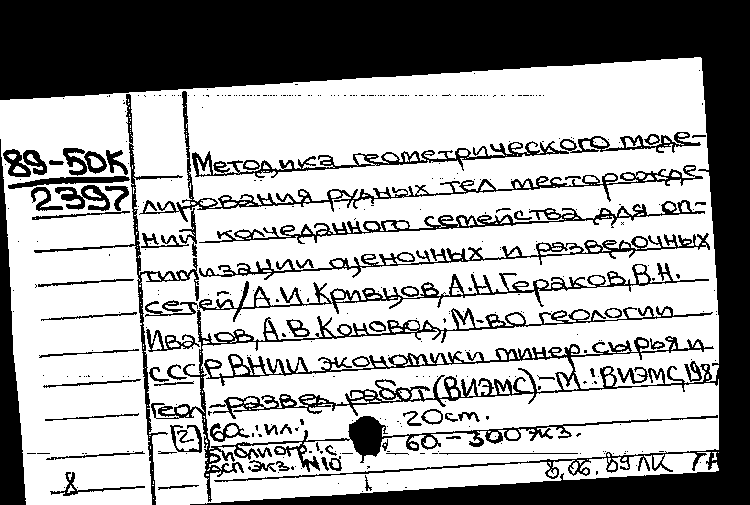 89-50К
2397
Методика геометрического моде-
лирования рудных тел месторожде-
ний колчеданного семейства для оп-
тимизации оценочных и разведочных
сетей/А.И.Кривцов,А.Н.Гераков,В.Н.
Иванов,А.В.Коновод;М-во геологии
СССР,ВНИИ экономики минер.сырья и
геол.-развед.работ(ВИЭМС).-М.:ВИЭМС,1987
-[2] 60с.:ил.; 20см.
Библиогр.:с. 60.-300экз.
экз. N10
8 8.06.89 ЛК